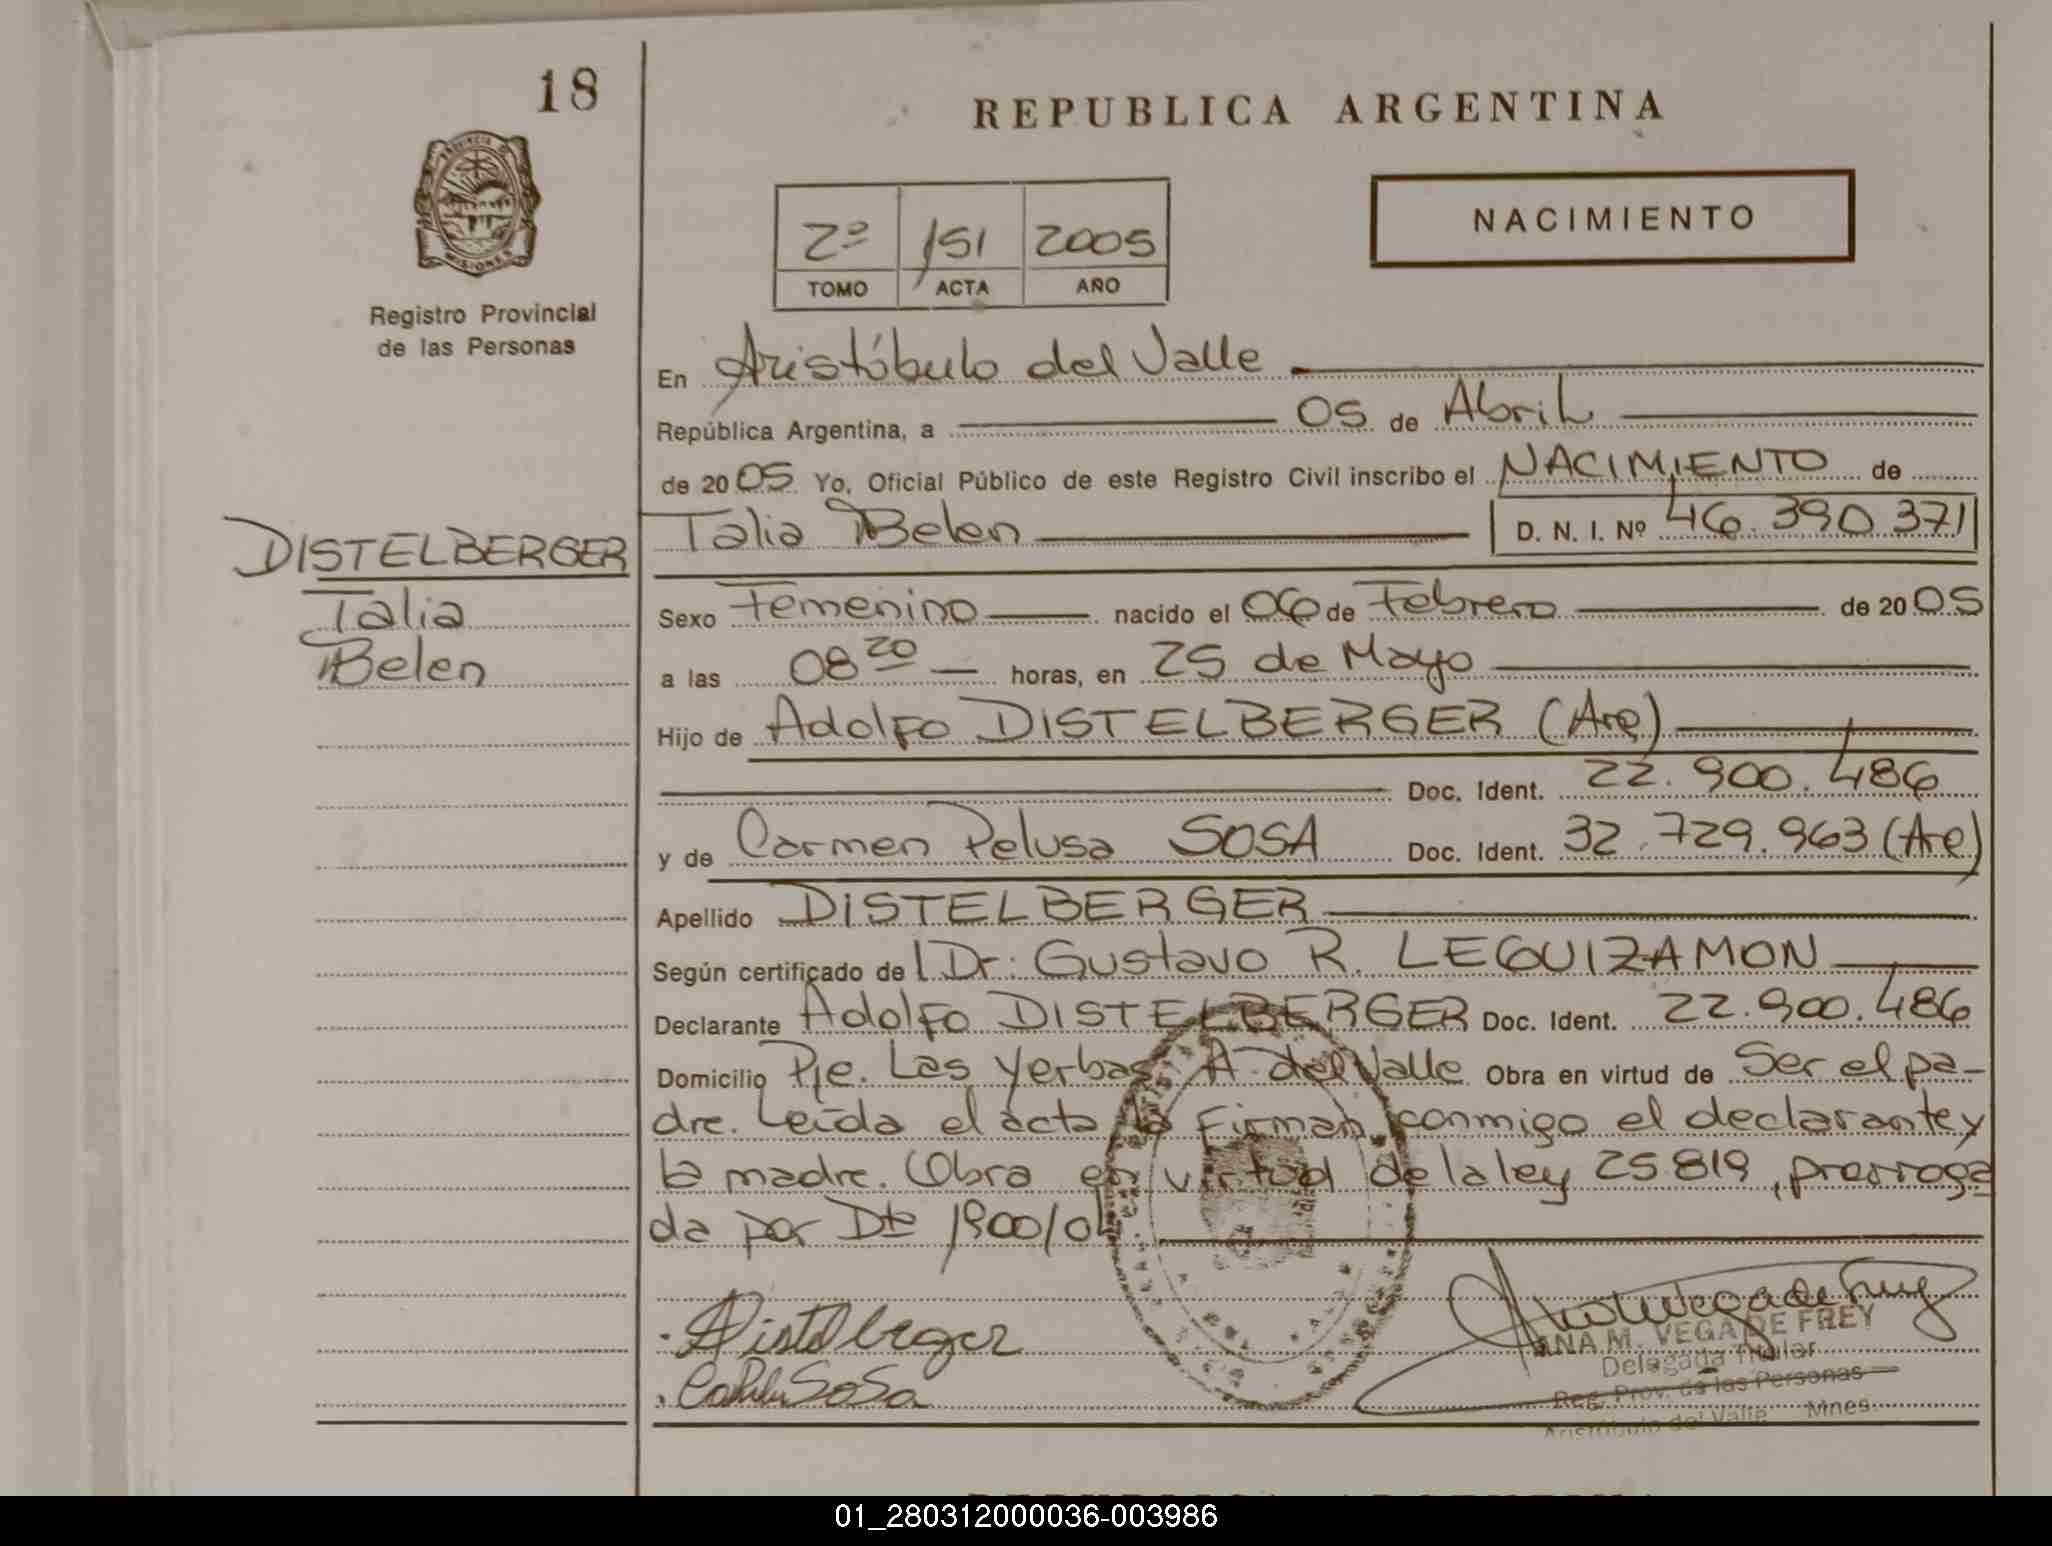 18
REPUBLICA ARGENTINA
PROVINCIA DE
MISIONES
NACIMIENTO
2º 151 2005
TOMO ACTA AÑO
Registro Provincial
de las Personas
En Aristóbulo del Valle
República Argentina, a 05 de Abril
de 2005 Yo, Oficial Público de este Registro Civil inscribo el NACIMIENTO de
Talia Belen D. N. I. Nº 46.390.371
DISTELBERGER
Talia
Belen
Sexo Femenino nacido el 06 de Febrero de 2005
a las 08 20 horas, en 25 de Mayo
Hijo de Adolfo DISTELBERGER (Arg)
Doc. Ident. 22.900.486
y de Carmen Pelusa SOSA Doc. Ident. 32.729.963 (Arg)
Apellido DISTELBERGER
Según certificado de Dr. Gustavo R. LEGUIZAMON
Declarante Adolfo DISTELBERGER Doc. Ident. 22.900.486
Domicilio Pje. Las Yerbas A. del Valle Obra en virtud de Ser el pa-
dre. Leída el acta la Firman conmigo el declarante y
la madre. Obra en virtud de la ley 25.819, prorroga
da por Dto 1900/04
Distelberger
Sosa
ANA M. VEGA DE FREY
Delegada Titular
Reg. Prov. de las Personas
Aristóbulo del Valle Mnes.
REPUBLICA ARGENTINA
01_280312000036-003986